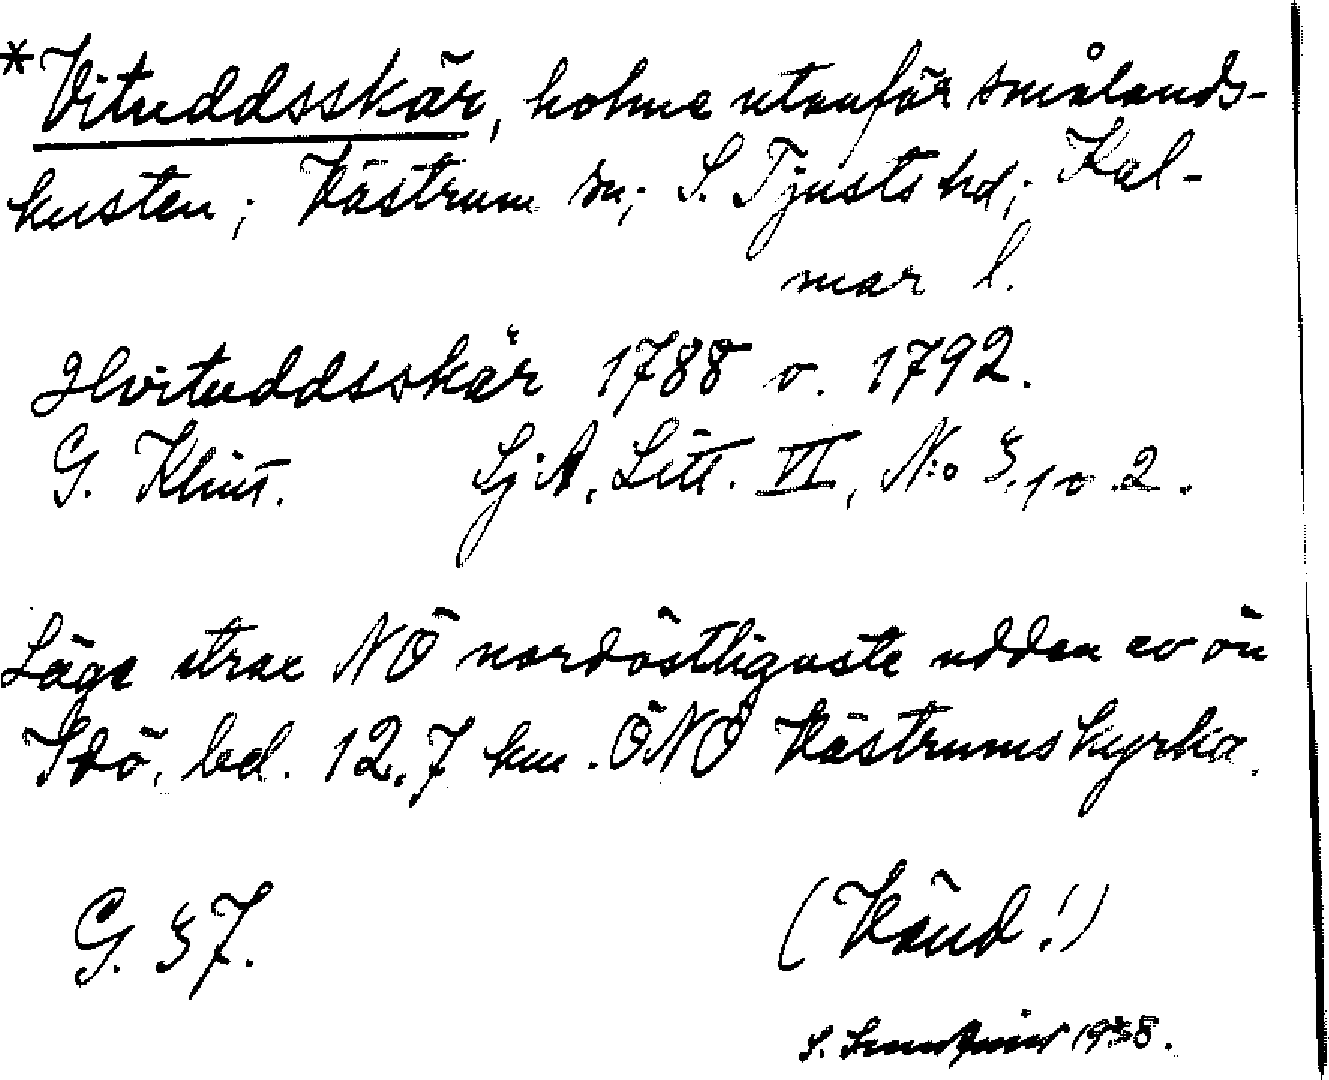 *Vituddsskär, holme utanför smålands-
kusten; Västrum sn; S. Tjusts hd; Kal-
mar l.
Hvituddsskär 1788 o. 1792.
G. Klint. Sj.A. Litt. VI, N:o 3, 1 o. 2.
Läge strax NO nordöstligaste udden av ön
Idö, bel. 12.7 km. ÖNO Västrums kyrka.
G. 37.
(Vänd!)
S. 1938.